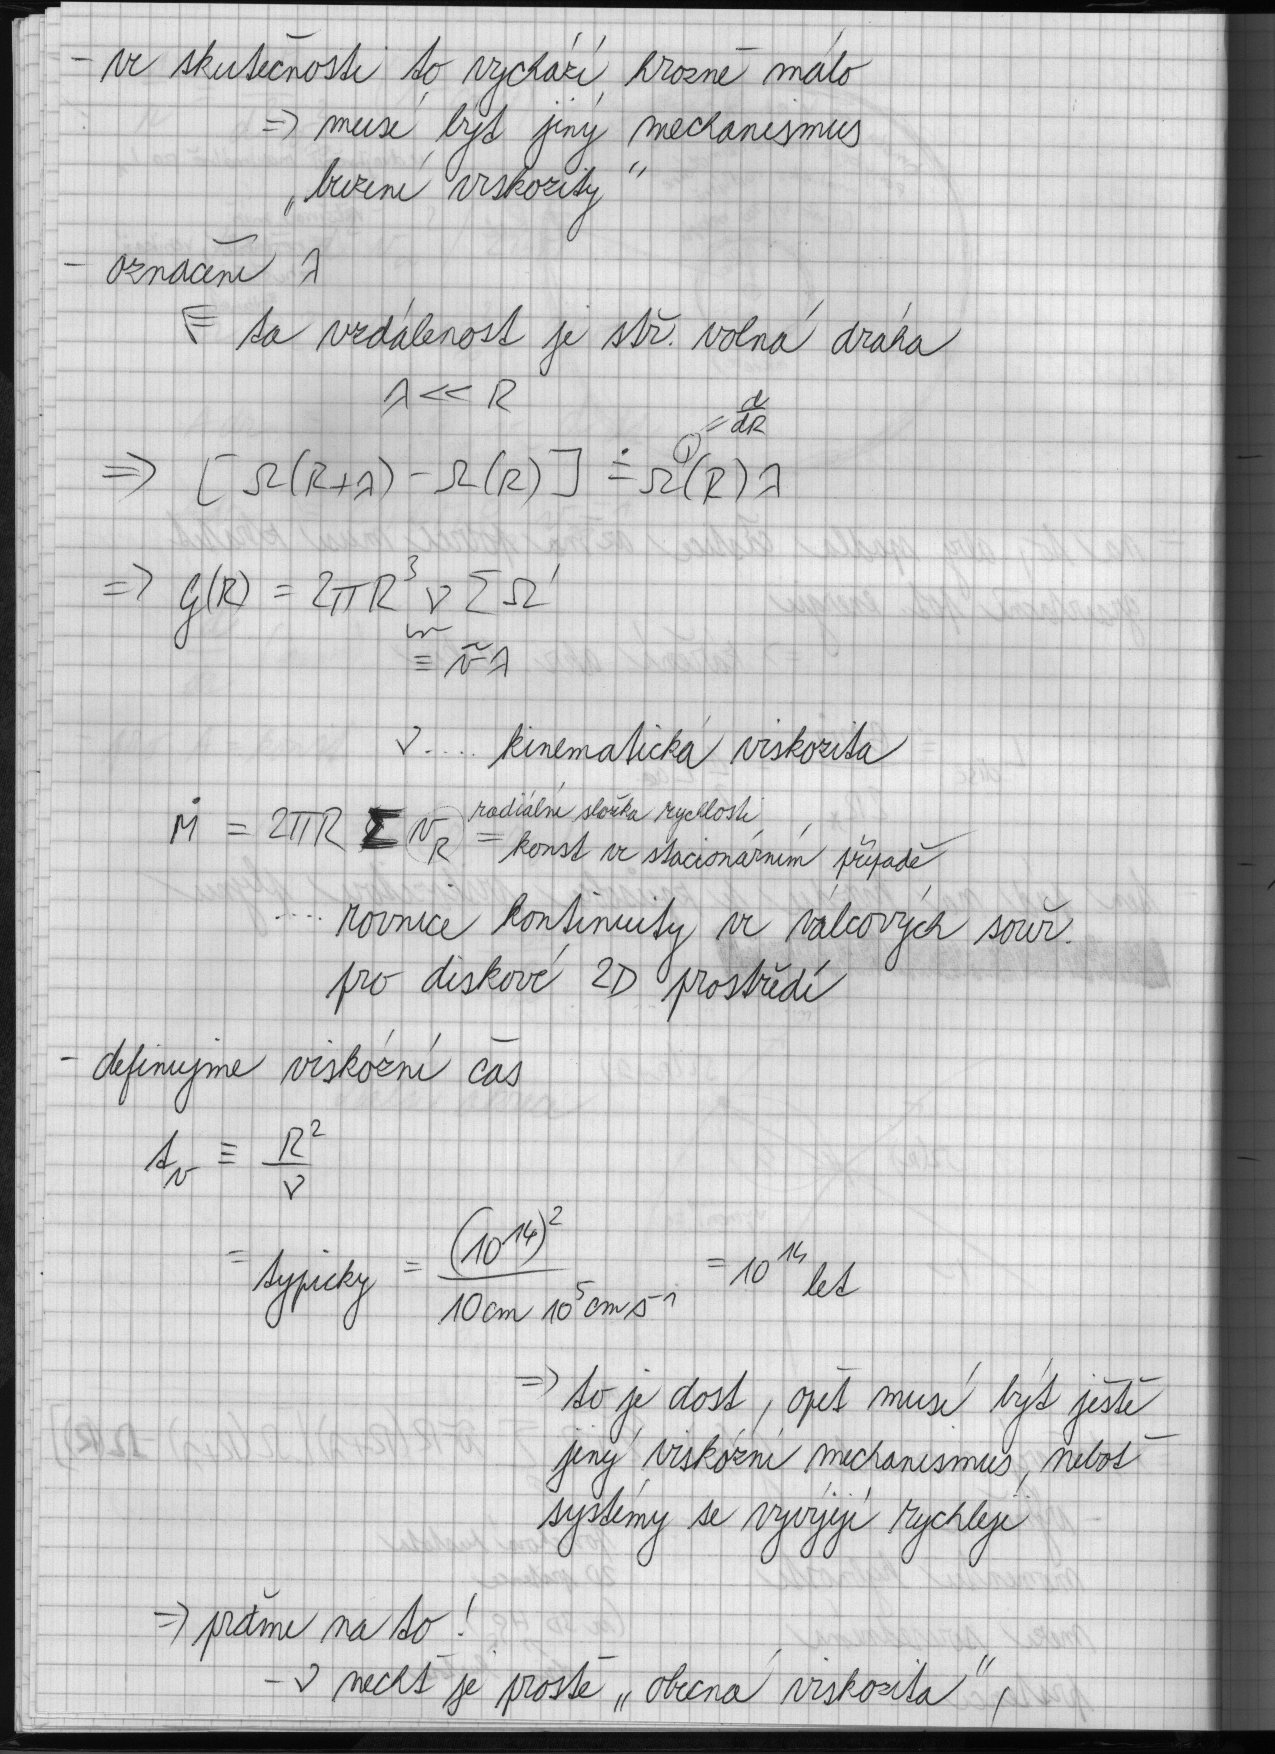 - ve skutečnosti to vychází hrozně málo
⇒ musí být jiný mechanismus
„buzení viskozity“
- označení λ
≡ ta vzdálenost je stř. volná dráha
λ << R
= d/dR
⇒ [Ω(R+λ) - Ω(R)] ≐ Ω'(R) λ
⇒ G(R) = 2πR³ ν Σ Ω'
≡ ṽ λ
ν .... kinematická viskozita
radiální složka rychlosti
Ṁ = 2πR Σ v_R = konst ve stacionárním případě
.... rovnice kontinuity ve válcových souř.
pro diskové 2D prostředí
- definujme viskózní čas
t_v ≡ R²/ν
= typicky = (10¹⁴)² / 10cm 10⁵cm s⁻¹ = 10¹⁴ let
⇒ to je dost, opět musí být ještě
jiný viskózní mechanismus, neboť
systémy se vyvíjejí rychleji
⇒ prďme na to!
- ν nechť je prostě „obecná viskozita“,